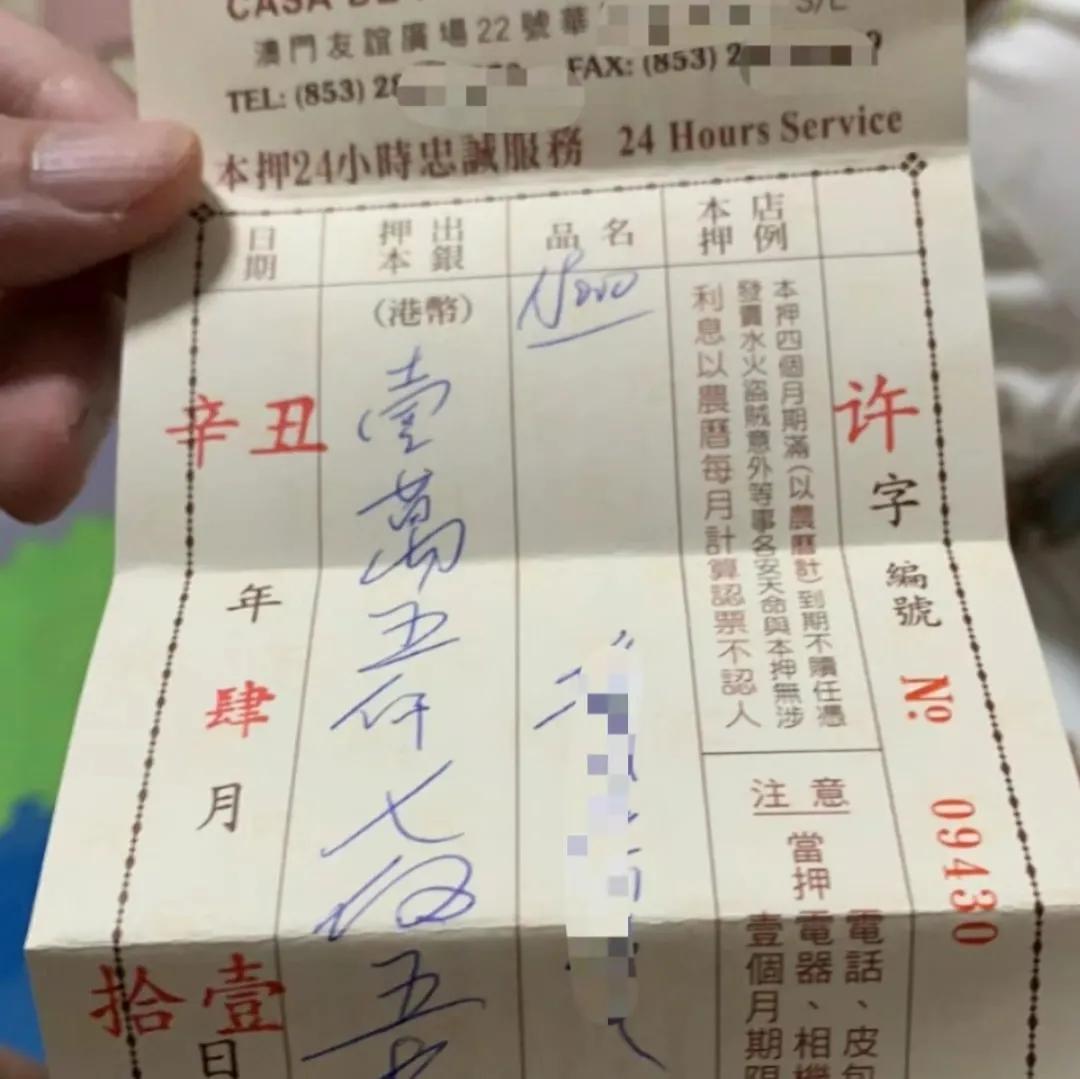 CASA DE
澳門友誼廣場22號華 S/L
TEL: (853) 28 FAX: (853) 2
本押24小時忠誠服務 24 Hours Service
日期
押本
出銀
品名
本押
店例
(港幣)
壹萬五仟七佰五
辛丑年肆月拾壹日
本押四個月期滿(以農曆計)到期不贖任憑
發賣水火盜賊意外等事各安天命與本押無涉
利息以農曆每月計算認票不認人
注意
當押
電話、皮包
電器、相機
壹個月期限
许字編號 Nº 09430